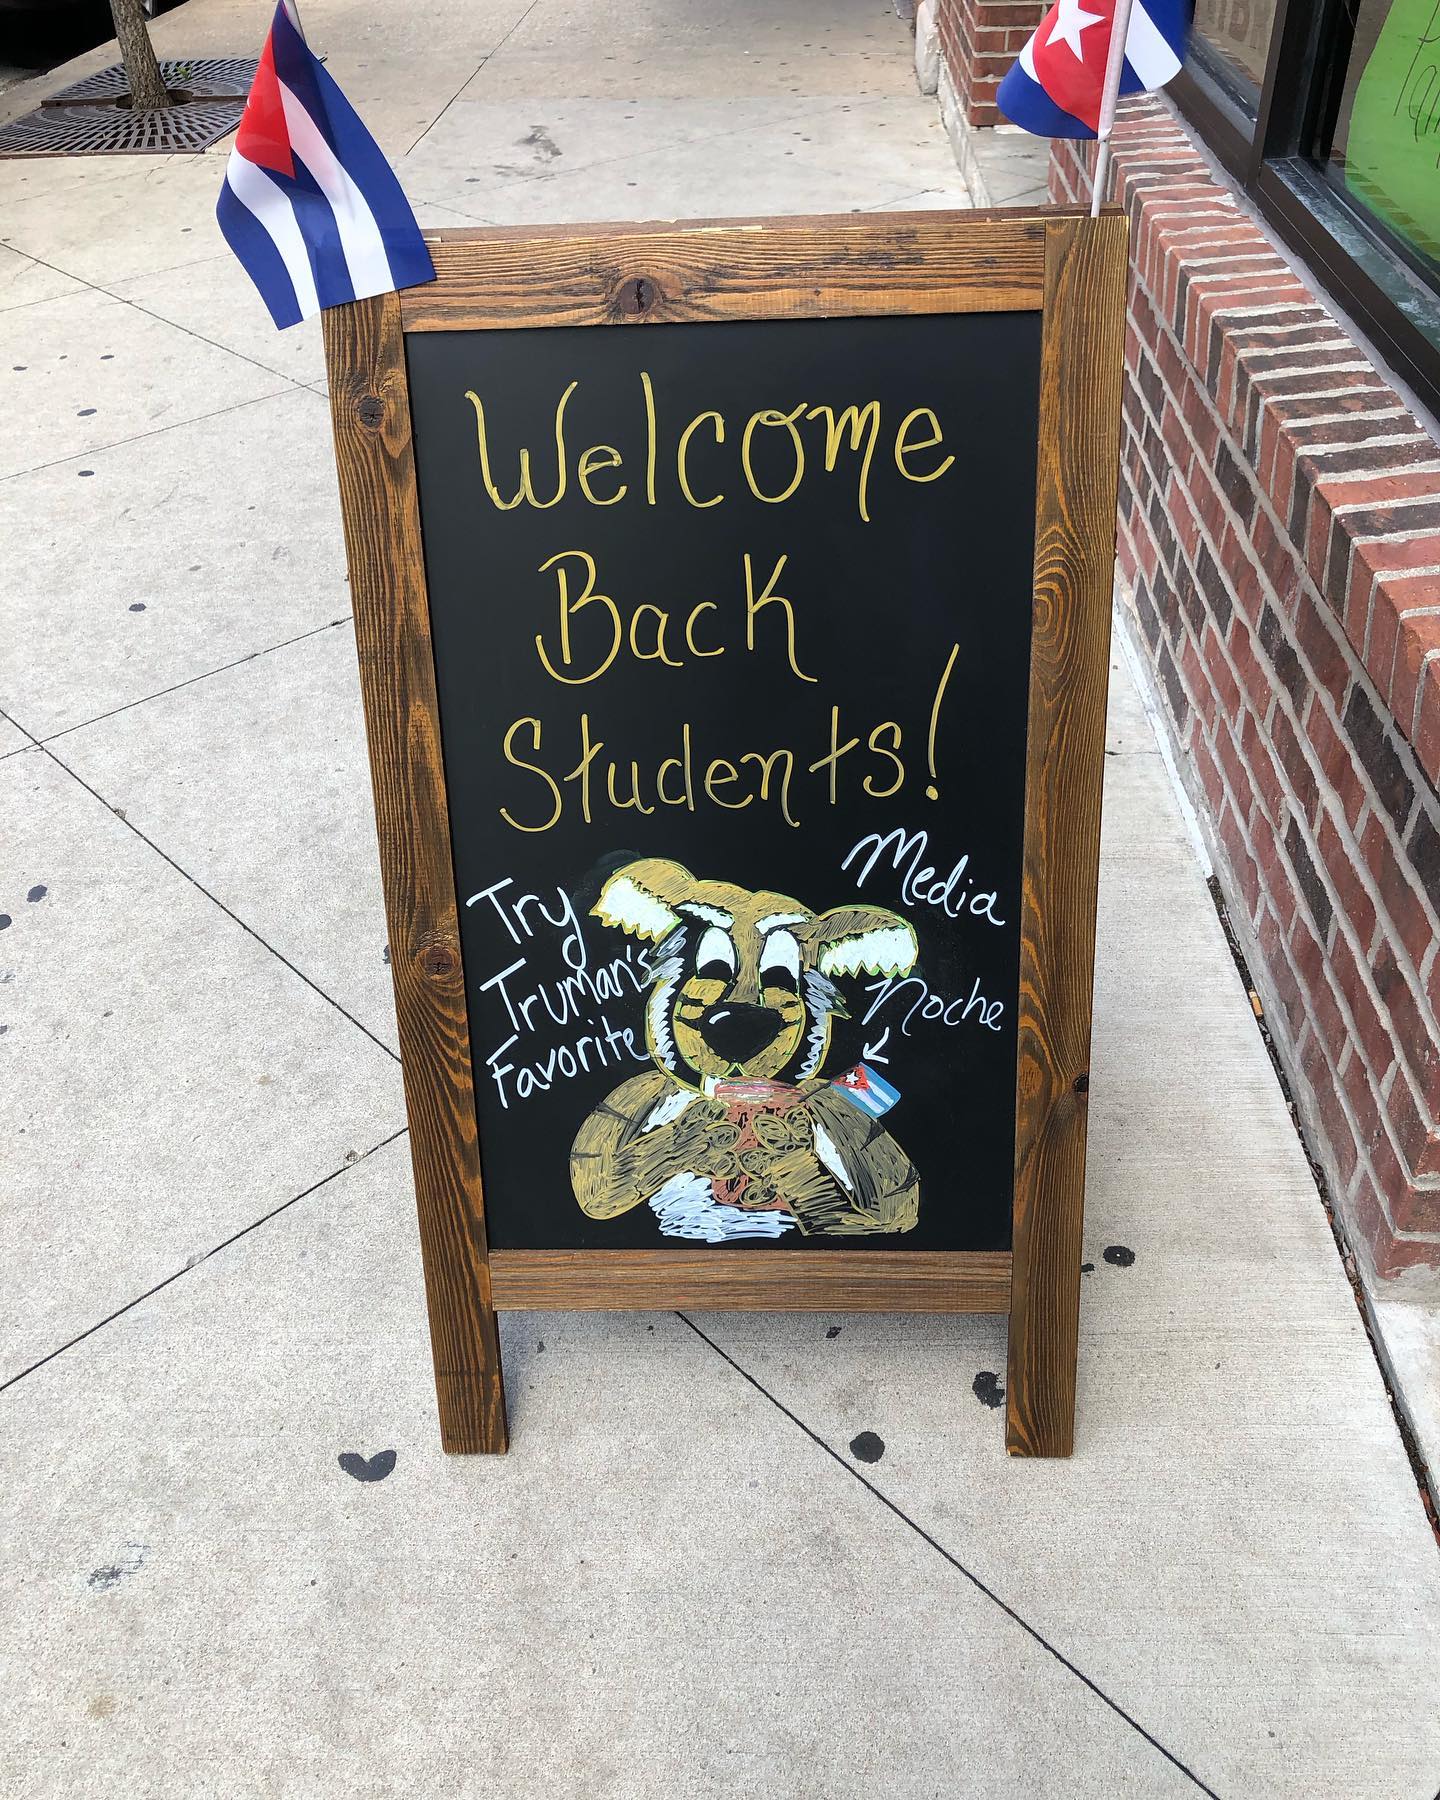 Welcome
Back
Students!
Try
Truman's
Favorite
Media
Noche